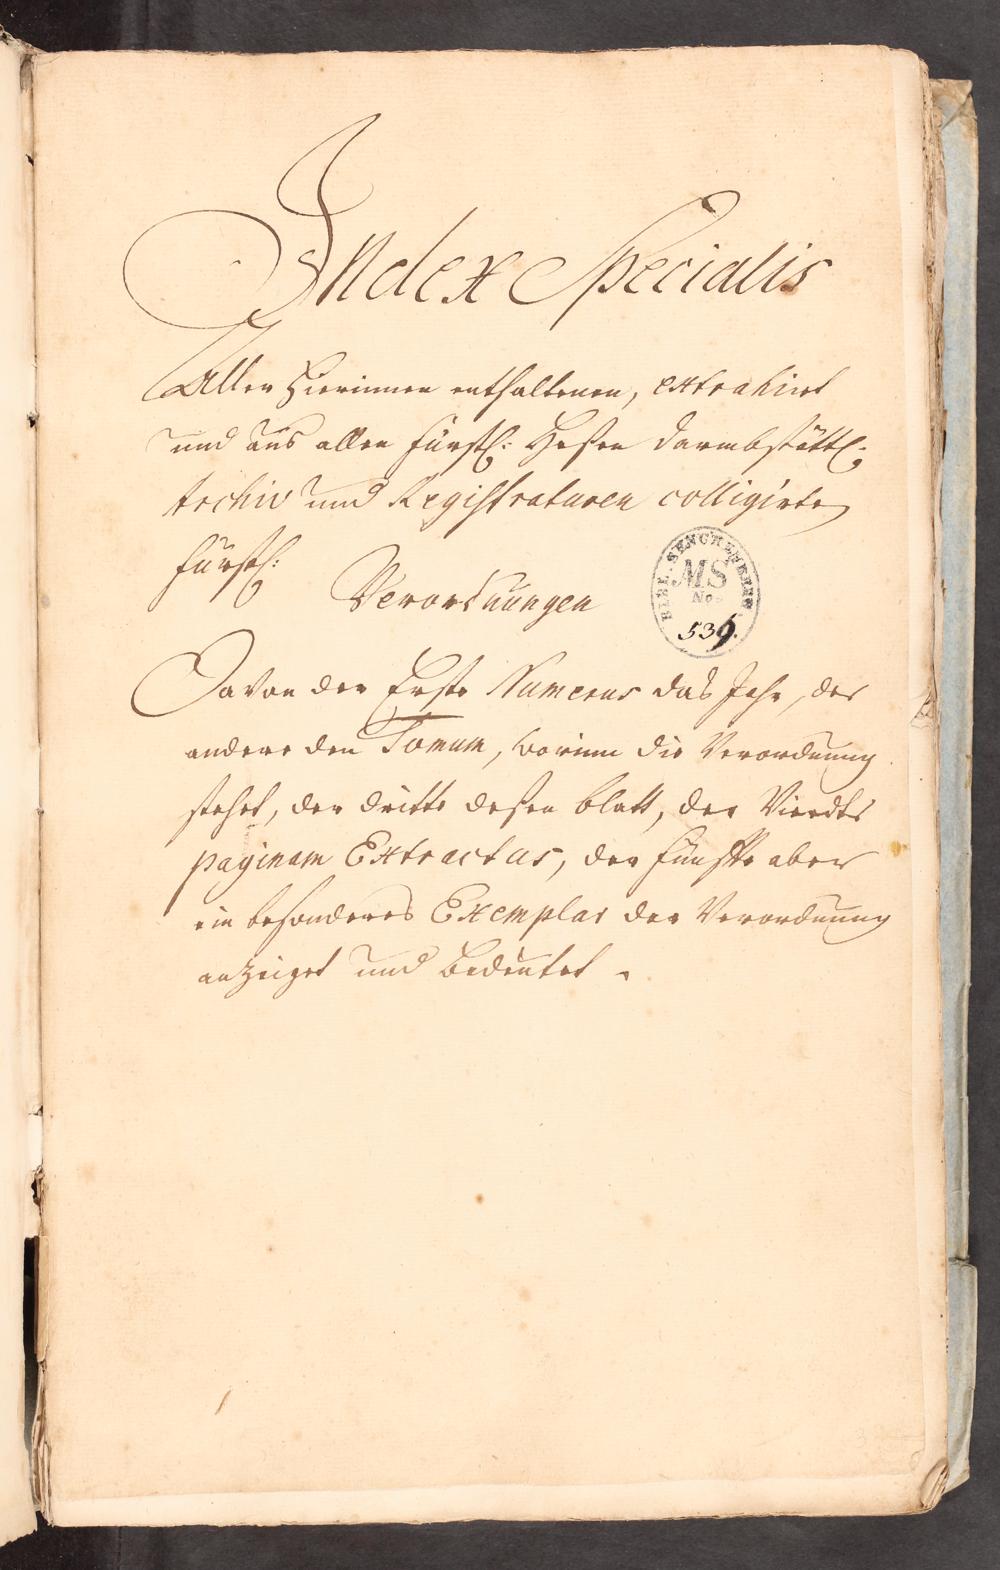 Index Specialis
Aller hierinnen enthaltenen, extrahirt
und aus allen Fürstl: Heßen Darmbstättl:
Archiv und Registraturen colligirten
Fürstl:
Verordnungen
BIBL. SENCKENBERG
MS
No.
535.
Davon der Erste Numerus das Jahr, der
andere den Tomum, worinn die Verordnung
stehet, der dritte deßen blatt, der Vierdte
paginam Extractus, der fünffte aber
ein besonderes Exemplar der Verordnung
anzeiget und bedeutet.